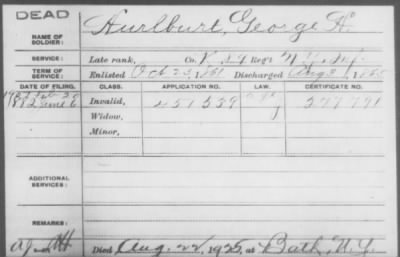 DEAD
NAME OF SOLDIER: Hurlburt, George H.
SERVICE: Late rank, Co. K, 89 Reg't N.Y. Inf.
TERM OF SERVICE: Enlisted Oct 1861 Discharged Aug 3, 1865
DATE OF FILING. CLASS. APPLICATION NO. LAW. CERTIFICATE NO.
1882 June 6 Invalid, 451539
Widow,
Minor,
ADDITIONAL SERVICES:
REMARKS:
Died Aug. 22, 1925, at Bath, N.Y.